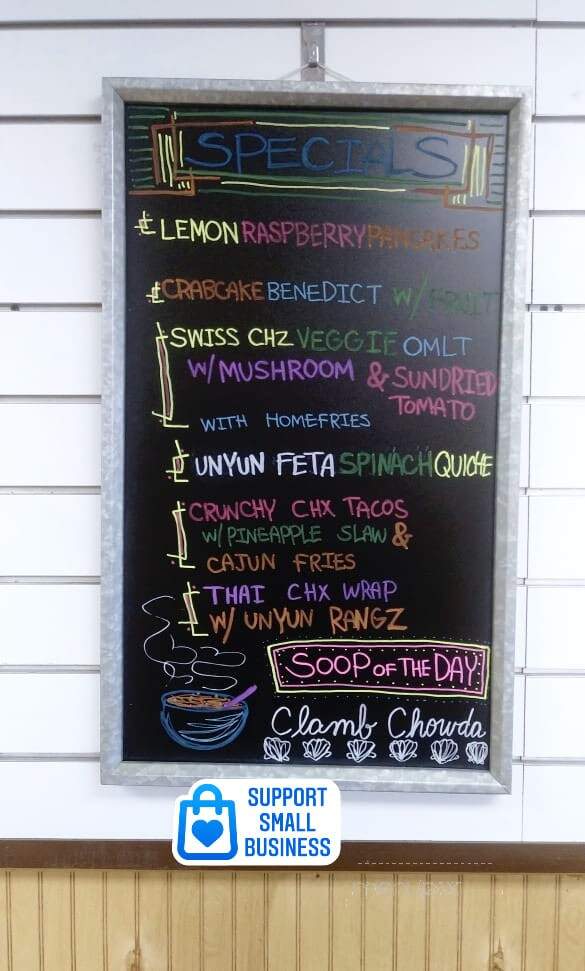 SPECIALS
LEMON RASPBERRY PANCAKES
CRABCAKE BENEDICT W/ FRUIT
SWISS CHZ VEGGIE OMLT
W/ MUSHROOM & SUNDRIED
TOMATO
WITH HOMEFRIES
UNYUN FETA SPINACH QUICHE
CRUNCHY CHX TACOS
W/ PINEAPPLE SLAW &
CAJUN FRIES
THAI CHX WRAP
W/ UNYUN RANGZ
SOOP OF THE DAY
Clamb Chowda
SUPPORT
SMALL
BUSINESS